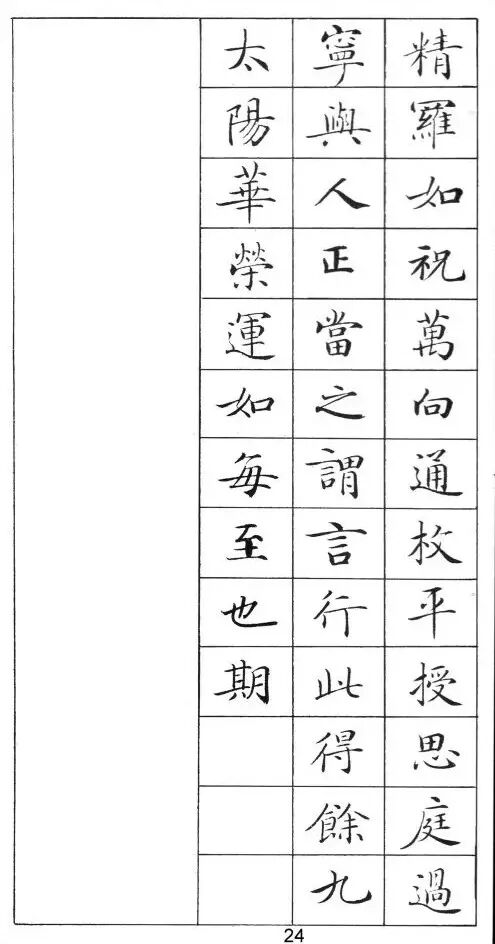 精羅如祝萬向通枚平授思庭過
寧與人正當之謂言行此得餘九
太陽華榮運如每至也期
24